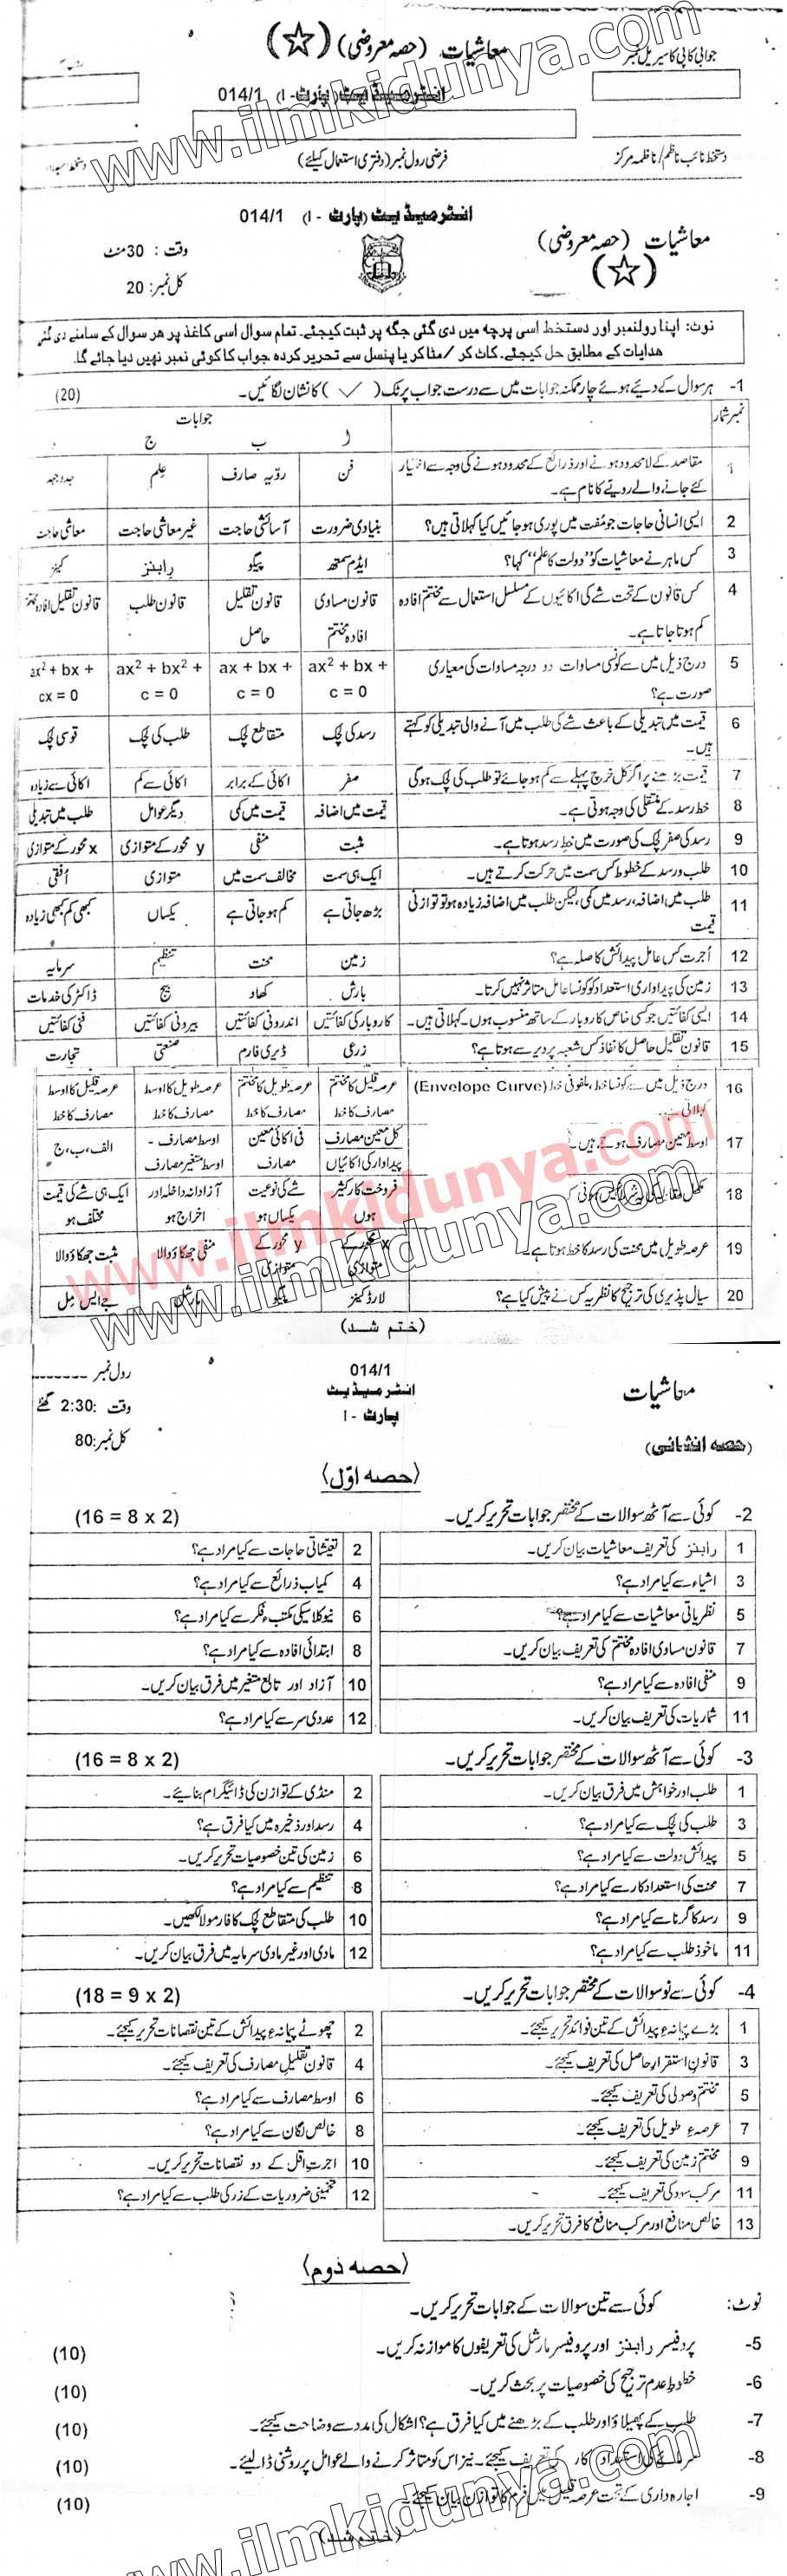 معاشیات (حصہ معروضی) (☆)
جوابی کاپی کا سیریل نمبر
انٹرمیڈیٹ (پارٹ - I) 014/1
دستخط نائب ناظم / ناظمہ مرکز
فرضی رول نمبر (دفتری استعمال کیلئے)
انٹرمیڈیٹ (پارٹ - I) 014/1
معاشیات (حصہ معروضی)
(☆)
وقت : 30 منٹ
کل نمبر: 20
نوٹ: اپنا رولنمبر اور دستخط اسی پرچہ میں دی گئی جگہ پر ثبت کیجئے۔ تمام سوال اسی کاغذ پر ھر سوال کے سامنے دی گئی
ھدایات کے مطابق حل کیجئے۔ کاٹ کر / مٹا کر یا پنسل سے تحریر کردہ جواب کا کوئی نمبر نہیں دیا جائے گا۔
1- ہر سوال کے دیئے ہوئے چار ممکنہ جوابات میں سے درست جواب پر ٹک (✓) کا نشان لگائیں۔ (20)
نمبر شمار جوابات
ا ب ج د
1 مقاصد کے لامحدود ہونے اور ذرائع کے محدود ہونے کی وجہ سے اختیار فن رویہ صارف علم جدوجہد
کئے جانے والے رویے کا نام ہے۔
2 ایسی انسانی حاجات جو مُفت میں پوری ہو جائیں کیا کہلاتی ہیں؟ بنیادی ضرورت آسائشی حاجت غیر معاشی حاجت معاشی حاجت
3 کس ماہر نے معاشیات کو "دولت کا علم" کہا؟ ایڈم سمتھ پیگو رابنز کینز
4 کس قانون کے تحت شے کی اکائیوں کے مسلسل استعمال سے مختتم افادہ قانون مساوی قانون تقلیل قانون طلب قانون تقلیل افادہ مختتم
کم ہوتا جاتا ہے۔ افادہ مختتم حاصل
5 درج ذیل میں سے کونسی مساوات دو درجہ مساوات کی معیاری ax² + bx + ax + bx + ax² + bx² + ax² + bx +
صورت ہے؟ c = 0 c = 0 c = 0 cx = 0
6 قیمت میں تبدیلی کے باعث شے کی طلب میں آنے والی تبدیلی کو کہتے رسد کی لچک متقاطع لچک طلب کی لچک قوسی لچک
ہیں۔
7 قیمت بڑھنے پر اگر کل خرچ پہلے سے کم ہو جائے تو طلب کی لچک ہوگی صفر اکائی کے برابر اکائی سے کم اکائی سے زیادہ
8 خط رسد کے منتقلی کی وجہ ہوتی ہے۔ قیمت میں اضافہ قیمت میں کمی دیگر عوامل طلب میں تبدیلی
9 رسد کی صفر لچک کی صورت میں خط رسد ہوتا ہے۔ مثبت منفی y محور کے متوازی x محور کے متوازی
10 طلب و رسد کے خطوط کس سمت میں حرکت کرتے ہیں۔ ایک ہی سمت مخالف سمت میں متوازی اُفقی
11 طلب میں اضافہ، رسد میں کمی، لیکن طلب میں اضافہ زیادہ ہو تو توازنی بڑھ جاتی ہے کم ہو جاتی ہے یکساں کبھی کم کبھی زیادہ
قیمت
12 اُجرت کس عامل پیدائش کا صلہ ہے؟ زمین محنت تنظیم سرمایہ
13 زمین کی پیداواری استعداد کو کونسا عامل متاثر نہیں کرتا۔ بارش کھاد بیج ڈاکٹر کی خدمات
14 ایسی کفائتیں جو کسی خاص کاروبار کے ساتھ منسوب ہوں۔ کہلاتی ہیں۔ کاروبار کی کفائتیں اندرونی کفائتیں بیرونی کفائتیں فنی کفائتیں
15 قانون تقلیل حاصل کا نفاذ کس شعبہ پر دیر سے ہوتا ہے؟ زرعی ڈیری فارم صنعتی تجارت
16 درج ذیل میں سے کونسا خط، ملفوفی خط (Envelope Curve) عرصہ قلیل کا مختتم عرصہ طویل کا مختتم عرصہ طویل کا اوسط عرصہ قلیل کا اوسط
کہلاتی ہے۔ مصارف کا خط مصارف کا خط مصارف کا خط مصارف کا خط
17 اوسط معین مصارف ہوتے ہیں۔ کل معین مصارف فی اکائی معین اوسط مصارف - الف، ب، ج
پیداوار کی اکائیاں مصارف اوسط متغیر مصارف
18 مکمل مقابلہ کی فروخت کار کثیر شے کی نوعیت آزادانہ داخلہ اور ایک ہی شے کی قیمت
ہوں یکساں ہو اخراج ہو مختلف ہو
19 عرصہ طویل میں محنت کی رسد کا خط ہوتا ہے۔ x محور کے y محور کے منفی جھکاؤ والا مثبت جھکاؤ والا
متوازی متوازی
20 سیال پذیری کی ترجیح کا نظریہ کس نے پیش کیا ہے؟ لارڈ کینز پیگو مارشل جے ایس مل
(ختم شد)
014/1
معاشیات انٹرمیڈیٹ رول نمبر -------
پارٹ - I وقت : 2:30 گھنٹے
(حصہ انشائی) کل نمبر: 80
(حصہ اوّل)
2- کوئی سے آٹھ سوالات کے مختصر جوابات تحریر کریں۔ (16 = 8 x 2)
1 رابنز کی تعریف معاشیات بیان کریں۔ 2 تعیشاتی حاجات سے کیا مراد ہے؟
3 اشیاء سے کیا مراد ہے؟ 4 کمیاب ذرائع سے کیا مراد ہے؟
5 نظریاتی معاشیات سے کیا مراد ہے؟ 6 نیو کلاسیکی مکتبہ فکر سے کیا مراد ہے؟
7 قانون مساوی افادہ مختتم کی تعریف بیان کریں۔ 8 ابتدائی افادہ سے کیا مراد ہے؟
9 منفی افادہ سے کیا مراد ہے؟ 10 آزاد اور تابع متغیر میں فرق بیان کریں۔
11 شماریات کی تعریف بیان کریں۔ 12 عددی سر سے کیا مراد ہے؟
3- کوئی سے آٹھ سوالات کے مختصر جوابات تحریر کریں۔ (16 = 8 x 2)
1 طلب اور خواہش میں فرق بیان کریں۔ 2 منڈی کے توازن کی ڈائیگرام بنایئے۔
3 طلب کی لچک سے کیا مراد ہے؟ 4 رسد اور ذخیرہ میں کیا فرق ہے؟
5 پیدائش دولت سے کیا مراد ہے؟ 6 زمین کی تین خصوصیات تحریر کریں۔
7 محنت کی استعداد کار سے کیا مراد ہے؟ 8 تنظیم سے کیا مراد ہے؟
9 رسد کا گرنا سے کیا مراد ہے؟ 10 طلب کی متقاطع لچک کا فارمولا لکھیں۔
11 ماخوذ طلب سے کیا مراد ہے؟ 12 مادی اور غیر مادی سرمایہ میں فرق بیان کریں۔
4- کوئی سے نو سوالات کے مختصر جوابات تحریر کریں۔ (18 = 9 x 2)
1 بڑے پیمانہء پیدائش کے تین فوائد تحریر کیجئے۔ 2 چھوٹے پیمانہء پیدائش کے تین نقصانات تحریر کیجئے۔
3 قانون استقرار حاصل کی تعریف کیجئے۔ 4 قانون تقلیل مصارف کی تعریف کیجئے۔
5 مختتم وصولی کی تعریف کیجئے۔ 6 اوسط مصارف سے کیا مراد ہے؟
7 عرصہء طویل کی تعریف کیجئے۔ 8 خالص لگان سے کیا مراد ہے؟
9 مختتم زمین کی تعریف کیجئے۔ 10 اجرت اقل کے دو نقصانات تحریر کریں۔
11 مرکب سود کی تعریف کیجئے۔ 12 تخمینی ضروریات کے زر کی طلب سے کیا مراد ہے؟
13 خالص منافع اور مرکب منافع کا فرق تحریر کریں۔
(حصہ دوم)
نوٹ: کوئی سے تین سوالات کے جوابات تحریر کریں۔
5- پروفیسر رابنز اور پروفیسر مارشل کی تعریفوں کا موازنہ کریں۔ (10)
6- خطوط عدم ترجیح کی خصوصیات پر بحث کریں۔ (10)
7- طلب کے پھیلاؤ اور طلب کے بڑھنے میں کیا فرق ہے؟ اشکال کی مدد سے وضاحت کیجئے۔ (10)
8- سرمائے کی استعداد کار کی تعریف کیجئے۔ نیز اس کو متاثر کرنے والے عوامل پر روشنی ڈالیئے۔ (10)
9- اجارہ داری کے تحت عرصہ قلیل میں فرم کا توازن بیان کیجئے۔ (10)
(ختم شد)
www.ilmkidunya.com
www.ilmkidunya.com
www.ilmkidunya.com
www.ilmkidunya.com